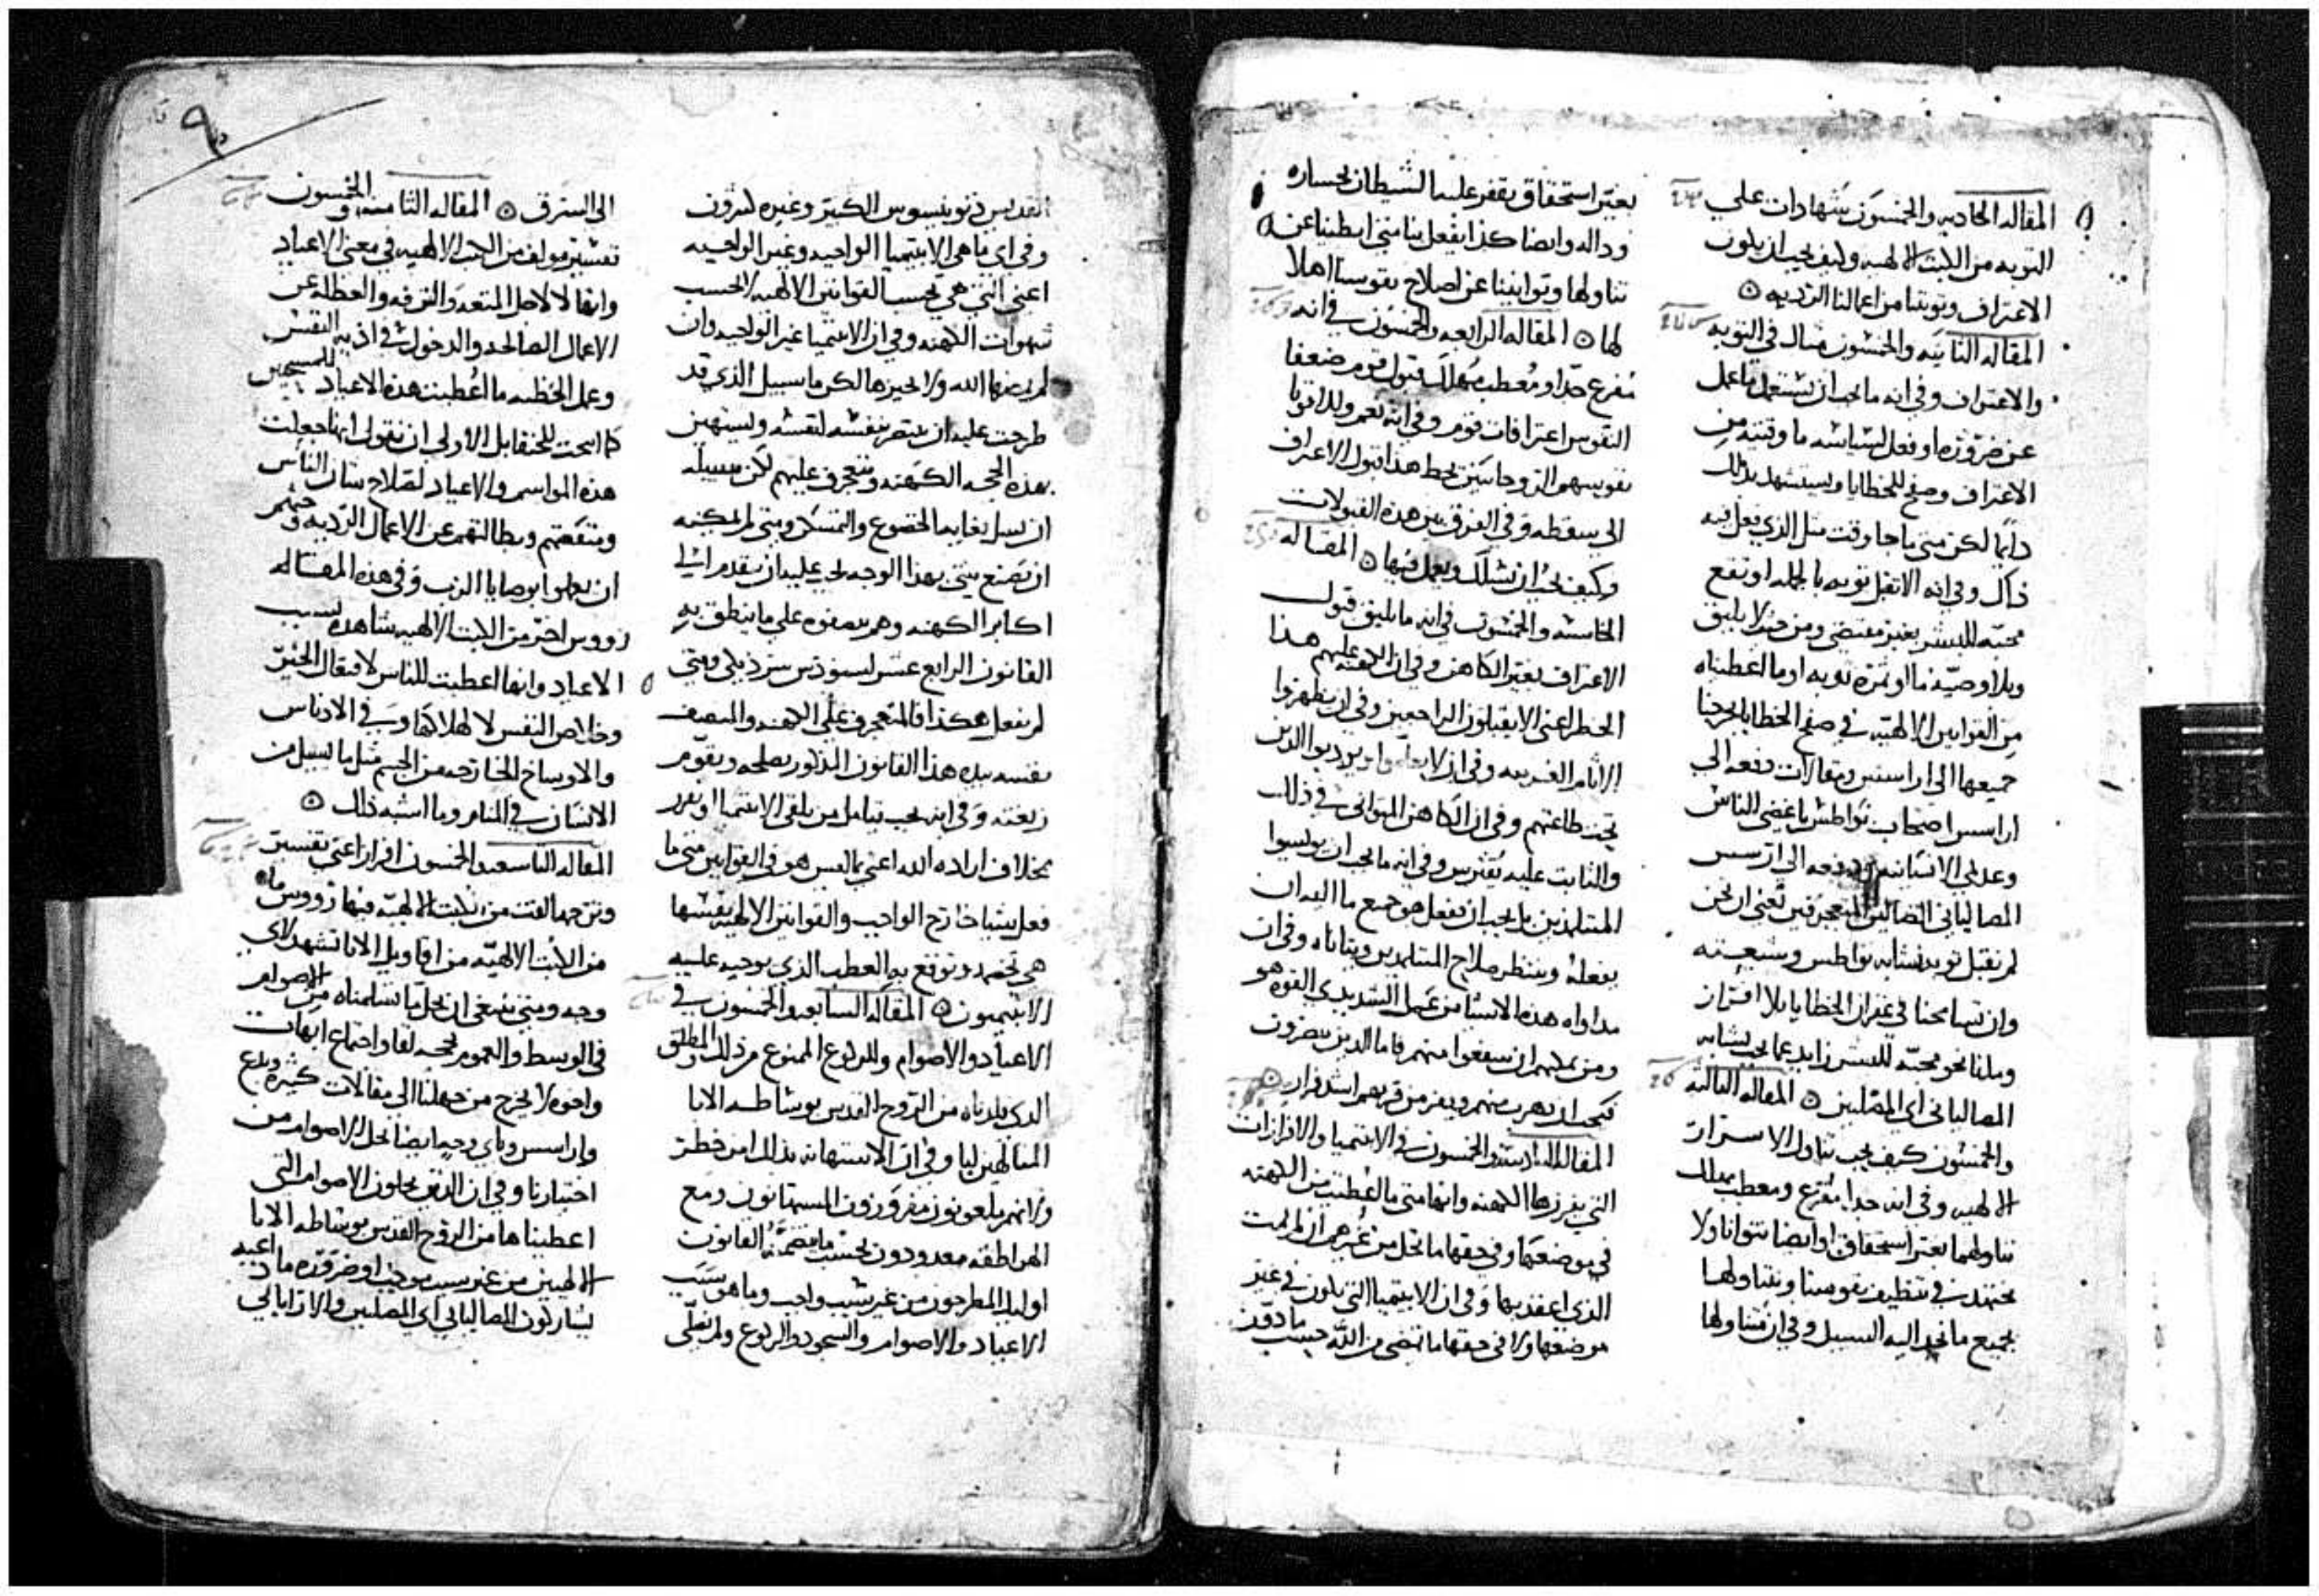 المقاله الحاديه والخمسون شهادات علي
التوبه من الكتب الالهيه وكيف يجب ان يكون
الاعتراف وتوبتنا من اعمالنا الرديه
المقاله الثانيه والخمسون مثال في التوبه
والاعتراف وفي انه ما يجب ان يستعمل ما عمل
عن ضروره او فعل لسياسه ما وقتيه من
الاعتراف وصفح للخطايا ويستشهد بذلك
دايما لكن متي ما جا وقت مثل الذي فعل فيه
ذاك وفي انه الا تقبل توبه بالجمله او تقع
محبه للبشر بغير مقتضي ومن حيث لا يليق
وبلا وصيه ما او ثمرة توبه او ما اعطيناه
من القوانين الالهيه في صفح الخطايا يخرجنا
جميعها الى اراسيس ومقالات دفعه الي
اراسيس اصحاب نواطس باغضي الناس
وعديمي الانسانيه ودفعه الى ارسيس
المصالياني الضالين المتعجرفين نعني ان نحن
لم نقبل توبه نشابه نواطس وشيعته
وان تسامحنا في غفران الخطايا بلا افراز
وملنا نحو محبه للبشر زايد عما يجب نشابه
المصالياني اي المصلين المقاله الثالثه
والخمسون كيف يجب تناول الاسرار
الالهيه وفي انه جدا مفزع ومعطب مهلك
تناولهما بغير استحقاق او ايضا نتوانا ولا
نجتهد في تنظيف نفوسنا ونتناولها
بجميع ما نجد اليه السبيل وفي ان متناولها
بغير استحقاق يقفز عليه الشيطان بجساره
وداله وايضا كذا يفعل بنا متي ابطينا عن
تناولها وتوانينا عن اصلاح نفوسنا اهلا
لها المقاله الرابعه والخمسون في انه
مفزع جدا ومعطب مهلك قبول قوم ضعفا
النفوس اعترافات قوم وفي انه نعم ولذا قونا
نفوسهم الروحانيين يحط هذا قبول الاعتراف
الى سقطه وفي الفرق بين هذه القبولات
وكيف يجب ان نسلك ونعمل فيها المقاله
الخامسه والخمسون في انه ما يليق قبول
الاعتراف بغير الكاهن وفي ان الكهنه عليهم هذا
الخطر اعني الا يقبلون الراجعين وفي ان يظهروا
الاثام الغريبه وفي ان لا يعلموا ويودبوا الذين
تحت طاعتهم وفي ان الكاهن المتواني في ذلك
والثابت عليه يفترس وفي انه ما يجب ان يوسوا
المتلمذين بل يجب ان نفعل هو جميع ما اليه ان
يفعله وينتظر صلاح المتلمذين ويتاناه وفي ان
مداواه هذه الاشيا من عمل الشديدي القوه هو
ومن يمكنهم ان ينفعوا منهم فاما الذين يتضررون
فيجب ان يهرب منهم ويفر من قربهم اشد فرار
المقاله السادسه والخمسون في الابتيميا والافرازات
التي يفرزها الكهنه وانها متي ما اعطيت من الكهنه
في موضعها وفي حقها ما تحل من غيرهم ان لم يمت
الذي اعقد بها وفي ان الابتيميا التي تكون في غير
موضعها ولا في حقها ما تمضي من الله حسب ما دون
القديس ديونيسيوس الكبير وغيره كثيرون
وفي اي ما هي الابتيميا الواجبه وغير الواجبه
اعني التي هي بحسب القوانين الالهيه لا بحسب
شهوات الكهنه وفي ان الابتيميا غير الواجبه وان
لم يمضها الله ولا يجيزها لكن ما سبيل الذي قد
طرحت عليه ان ينتصر بنفسه لنفسه ويستهين
بهذه الحجه الكهنه ويتعجرف عليهم لكن سبيله
ان يسل بغايه الخضوع والتمسكن ومتي لم يمكنه
ان يصنع شي بهذا الوجه يجب عليه ان يتقدم الي
اكابر الكهنه وهم ينصفوه علي ما ينطق به
القانون الرابع عشر لسنودس سرذيكي ومتي
لم يفعل هكذا فالمتعجرف علي الكهنه والمنصف
نفسه بيده هذا القانون المذكور يصلحه ويقوم
زيغته وفي انه يجب نتامل من يلقي الابتيميا او يفرز
بخلاف اراده الله اعني بما ليس هو في القوانين متي ما
فعل شيا خارج الواجب والقوانين الالهيه نفسها
هي تخصمه وتوقع به العطب الذي يوجبه عليه
الابتيميون المقاله السابعه والخمسون في
الاعياد والاصوام والركوع الممنوع من ذلك والمطلق
الذي قلدناه من الروح القدس بوساطه الابا
المتالهين لنا وفي ان الاستهانه بذلك امر خطر
وانهم ملعونون مفروزون المستهانون ومع
الهراطقه معدودون بحسب ما يتضمنه القانون
اوليك المطرحون من غير سبب واجب وما هو سبب
الاعياد والاصوام والسجود والركوع ولم نصلي
الى الشرق المقاله الثامنه والخمسون
تفسير مولف من الكتب الالهيه في معنى الاعياد
وانها لا لاجل المتعه والترفه والعطله عن
الاعمال الصالحه والدخول في اذيه النفس
وعمل الخطيه ما اعطيت هذه الاعياد للمسيحيين
كما ابحت للحنفا بل الاولي ان نقول انها جعلت
هذه المواسم والاعياد لصلاح شان الناس
ومنفعتهم وبطالتهم عن الاعمال الرديه وحثهم
ان يعملوا بوصايا الرب وفي هذه المقاله
رووس اخر من الكتب الالهيه شاهده بسبب
الاعياد وانها اعطيت للناس لافتعال الخير
وخلاص النفس لا لهلاكها وفي الادناس
والاوساخ الخارجه من الجسم مثل ما يسيل من
الانسان في المنام وما اشبه ذلك
المقاله التاسعه والخمسون افراز اعني تفسير
وترجمه الفت من الكتب الالهيه فيها رووس ما
من الكتب الالهيه من اقاويل الابا تشهد لاي
وجه ومتي ينبغي ان نحل ما تسلمناه من الاصوام
في الوسط والعموم بحجه لقا واجتماع ابهات
واخوه لا يخرج من جهلنا الى مقالات كثيره وبدع
واراسيس وباي وجه ايضا نحل الاصوام من
اختيارنا وفي ان الذين يحلون الاصوام التي
اعطيناها من الروح القدس بوساطه الابا
الالهيين من غير سبب موجب او ضروره ما داعيه
يشاركون المصالياني اي المصلين والاراباكي